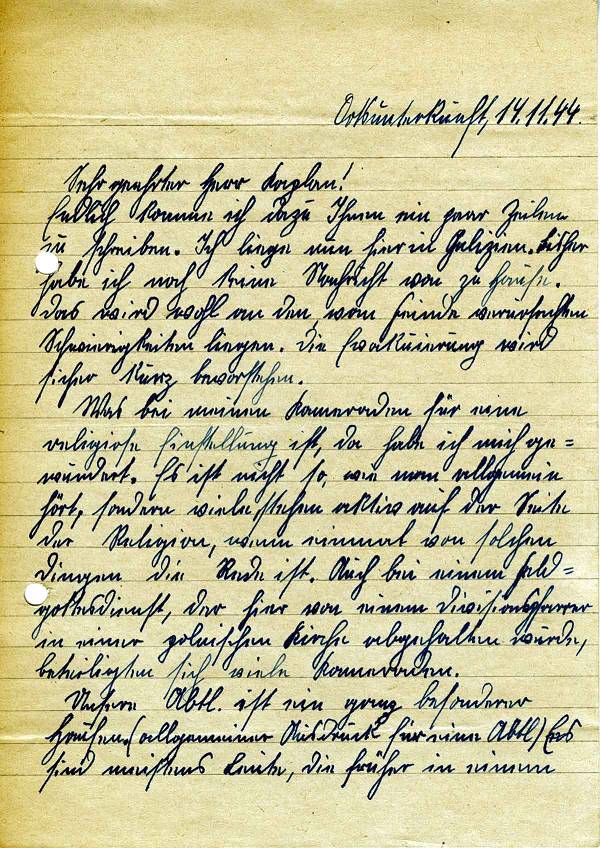 Ortsunterkunft, 14.11.44.
Sehr geehrter Herr Kaplan!
Endlich komme ich dazu Ihnen ein paar Zeilen
zu schreiben. Ich liege nun hier in Galizien. Bisher
habe ich noch keine Nachricht von zu Hause.
Das wird wohl an den vom Feinde verursachten
Schwierigkeiten liegen. Die Evakuierung wird
sicher kurz bevorstehen.
Was bei meinen Kameraden für eine
religiöse Einstellung ist, da habe ich mich ge=
wundert. Es ist nicht so, wie man allgemein
hört, sondern viele stehen aktiv auf der Seite
der Religion, wenn einmal von solchen
Dingen die Rede ist. Auch bei einem Feld=
gottesdienst, der hier von einem Divisionspfarrer
in einer polnischen Kirche abgehalten wurde,
beteiligten sich viele Kameraden.
Unsere Abtl. ist ein ganz besonderer
Haufen. (allgemeiner Ausdruck für eine Abtl) Es
sind meistens Leute, die früher in einem